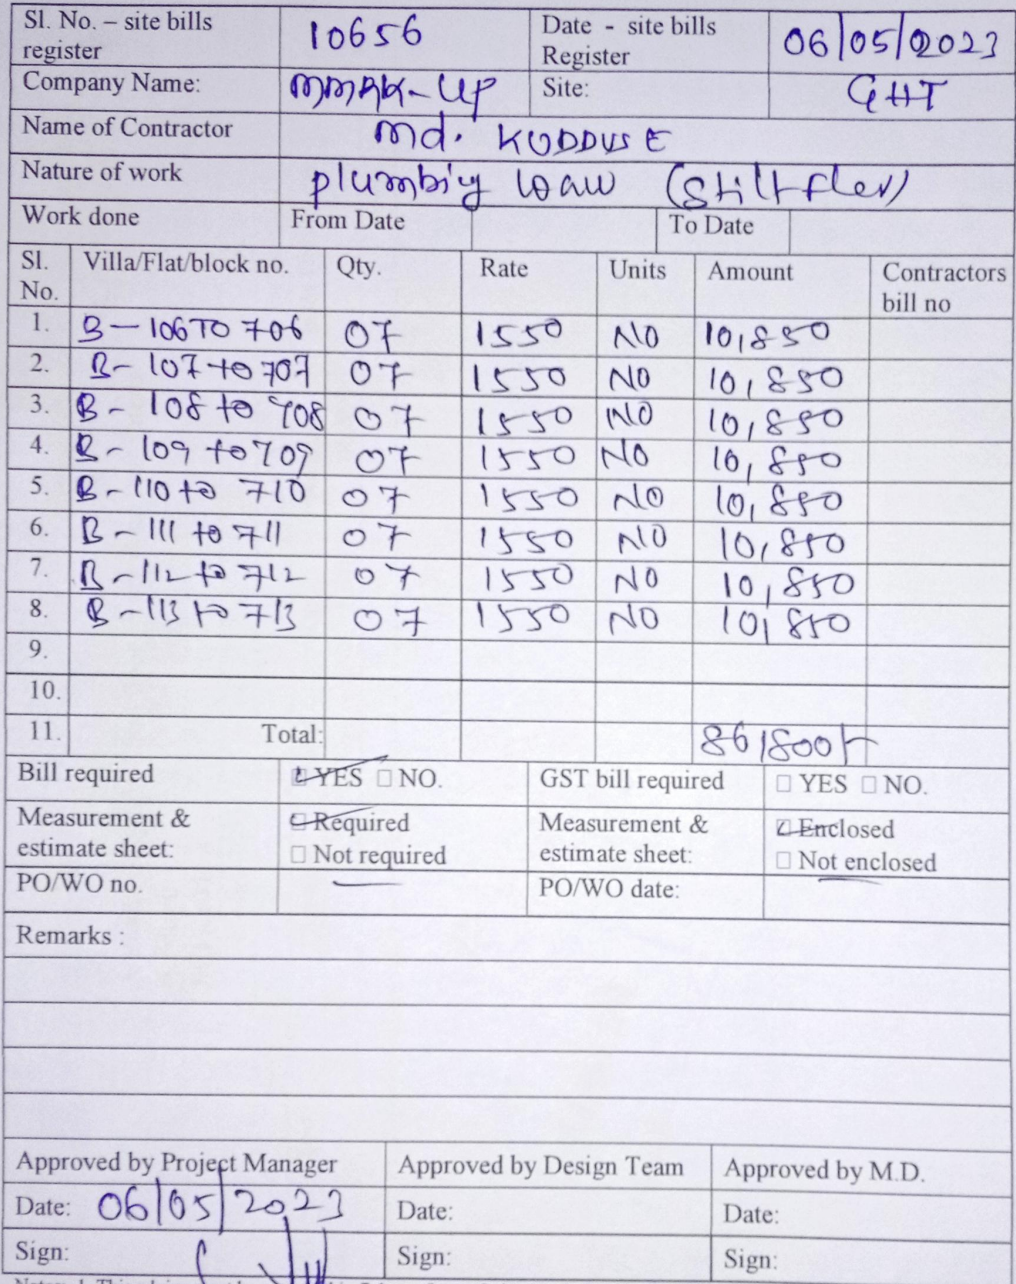 Sl. No. – site bills register 10656 Date - site bills Register 06/05/2023
Company Name: MMRK-UP Site: GHT
Name of Contractor Md. KUDDUSE
Nature of work plumbig (Stilt
Work done From Date To Date
Sl. No. Villa/Flat/block no. Qty. Rate Units Amount Contractors bill no
1. B-106 TO 706 07 1550 NO 10,850
2. B-107 to 707 07 1550 NO 10,850
3. B-108 to 708 07 1550 NO 10,850
4. B-109 to 709 07 1550 NO 10,850
5. B-110 to 710 07 1550 NO 10,850
6. B-111 to 711 07 1550 NO 10,850
7. B-112 to 712 07 1550 NO 10,850
8. B-113 to 713 07 1550 NO 10,850
9.
10.
11. Total: 86,800/-
Bill required □ YES □ NO. GST bill required □ YES □ NO.
Measurement & estimate sheet: □ Required □ Not required Measurement & estimate sheet: □ Enclosed □ Not enclosed
PO/WO no. PO/WO date:
Remarks :
Approved by Project Manager Approved by Design Team Approved by M.D.
Date: 06/05/2023 Date: Date:
Sign: Sign: Sign: